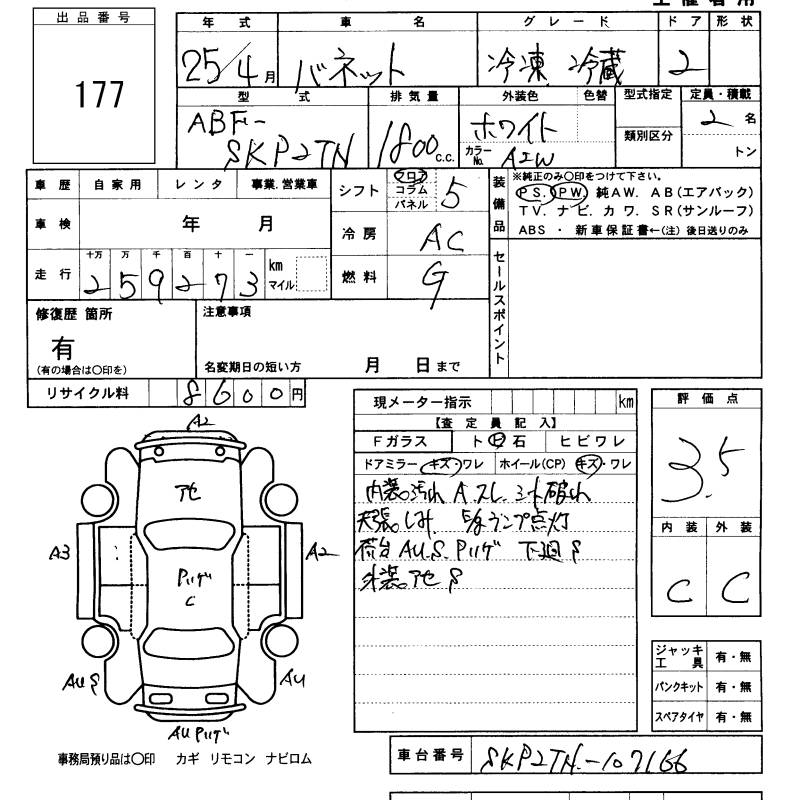 主催者用
出品番号
177
年式 車名 グレード ドア 形状
25/4月 バネット 冷凍 冷蔵 2
型式 排気量 外装色 色替 型式指定 定員・積載
ABF- SKP2TN 1800 C.C. ホワイト 類別区分 2名
カラーNo. A2W トン
車歴 自家用 レンタ 事業.営業車 シフト フロア コラム パネル 5
装備品 ※純正のみ〇印をつけて下さい。
PS. PW 純AW. AB(エアバック)
TV. ナビ. カワ. SR(サンルーフ)
ABS ・ 新車保証書←(注) 後日送りのみ
車検 年 月 冷房 AC
走行 十万 万 千 百 十 一 km マイル 燃料 G
259273
セールスポイント
修復歴 箇所 注意事項
有
(有の場合は〇印を) 名変期日の短い方 月 日まで
リサイクル料 8600円
現メーター指示 km
【査定員記入】
Fガラス ト ヒ 石 ヒビワレ
ドアミラー キズ・ワレ ホイール(CP) キズ・ワレ
内装汚れ A.スレ シート破れ
天張しみ ランプ点灯
荷台 AU.S. 下廻S
外装アセS
評価点
3.5
内装 外装
C C
A2
アセ
A3 A2
C
AUS AU
AU
ジャッキ工具 有・無
パンクキット 有・無
スペアタイヤ 有・無
事務局預り品は〇印 カギ リモコン ナビロム
車台番号 SKP2TN-107166